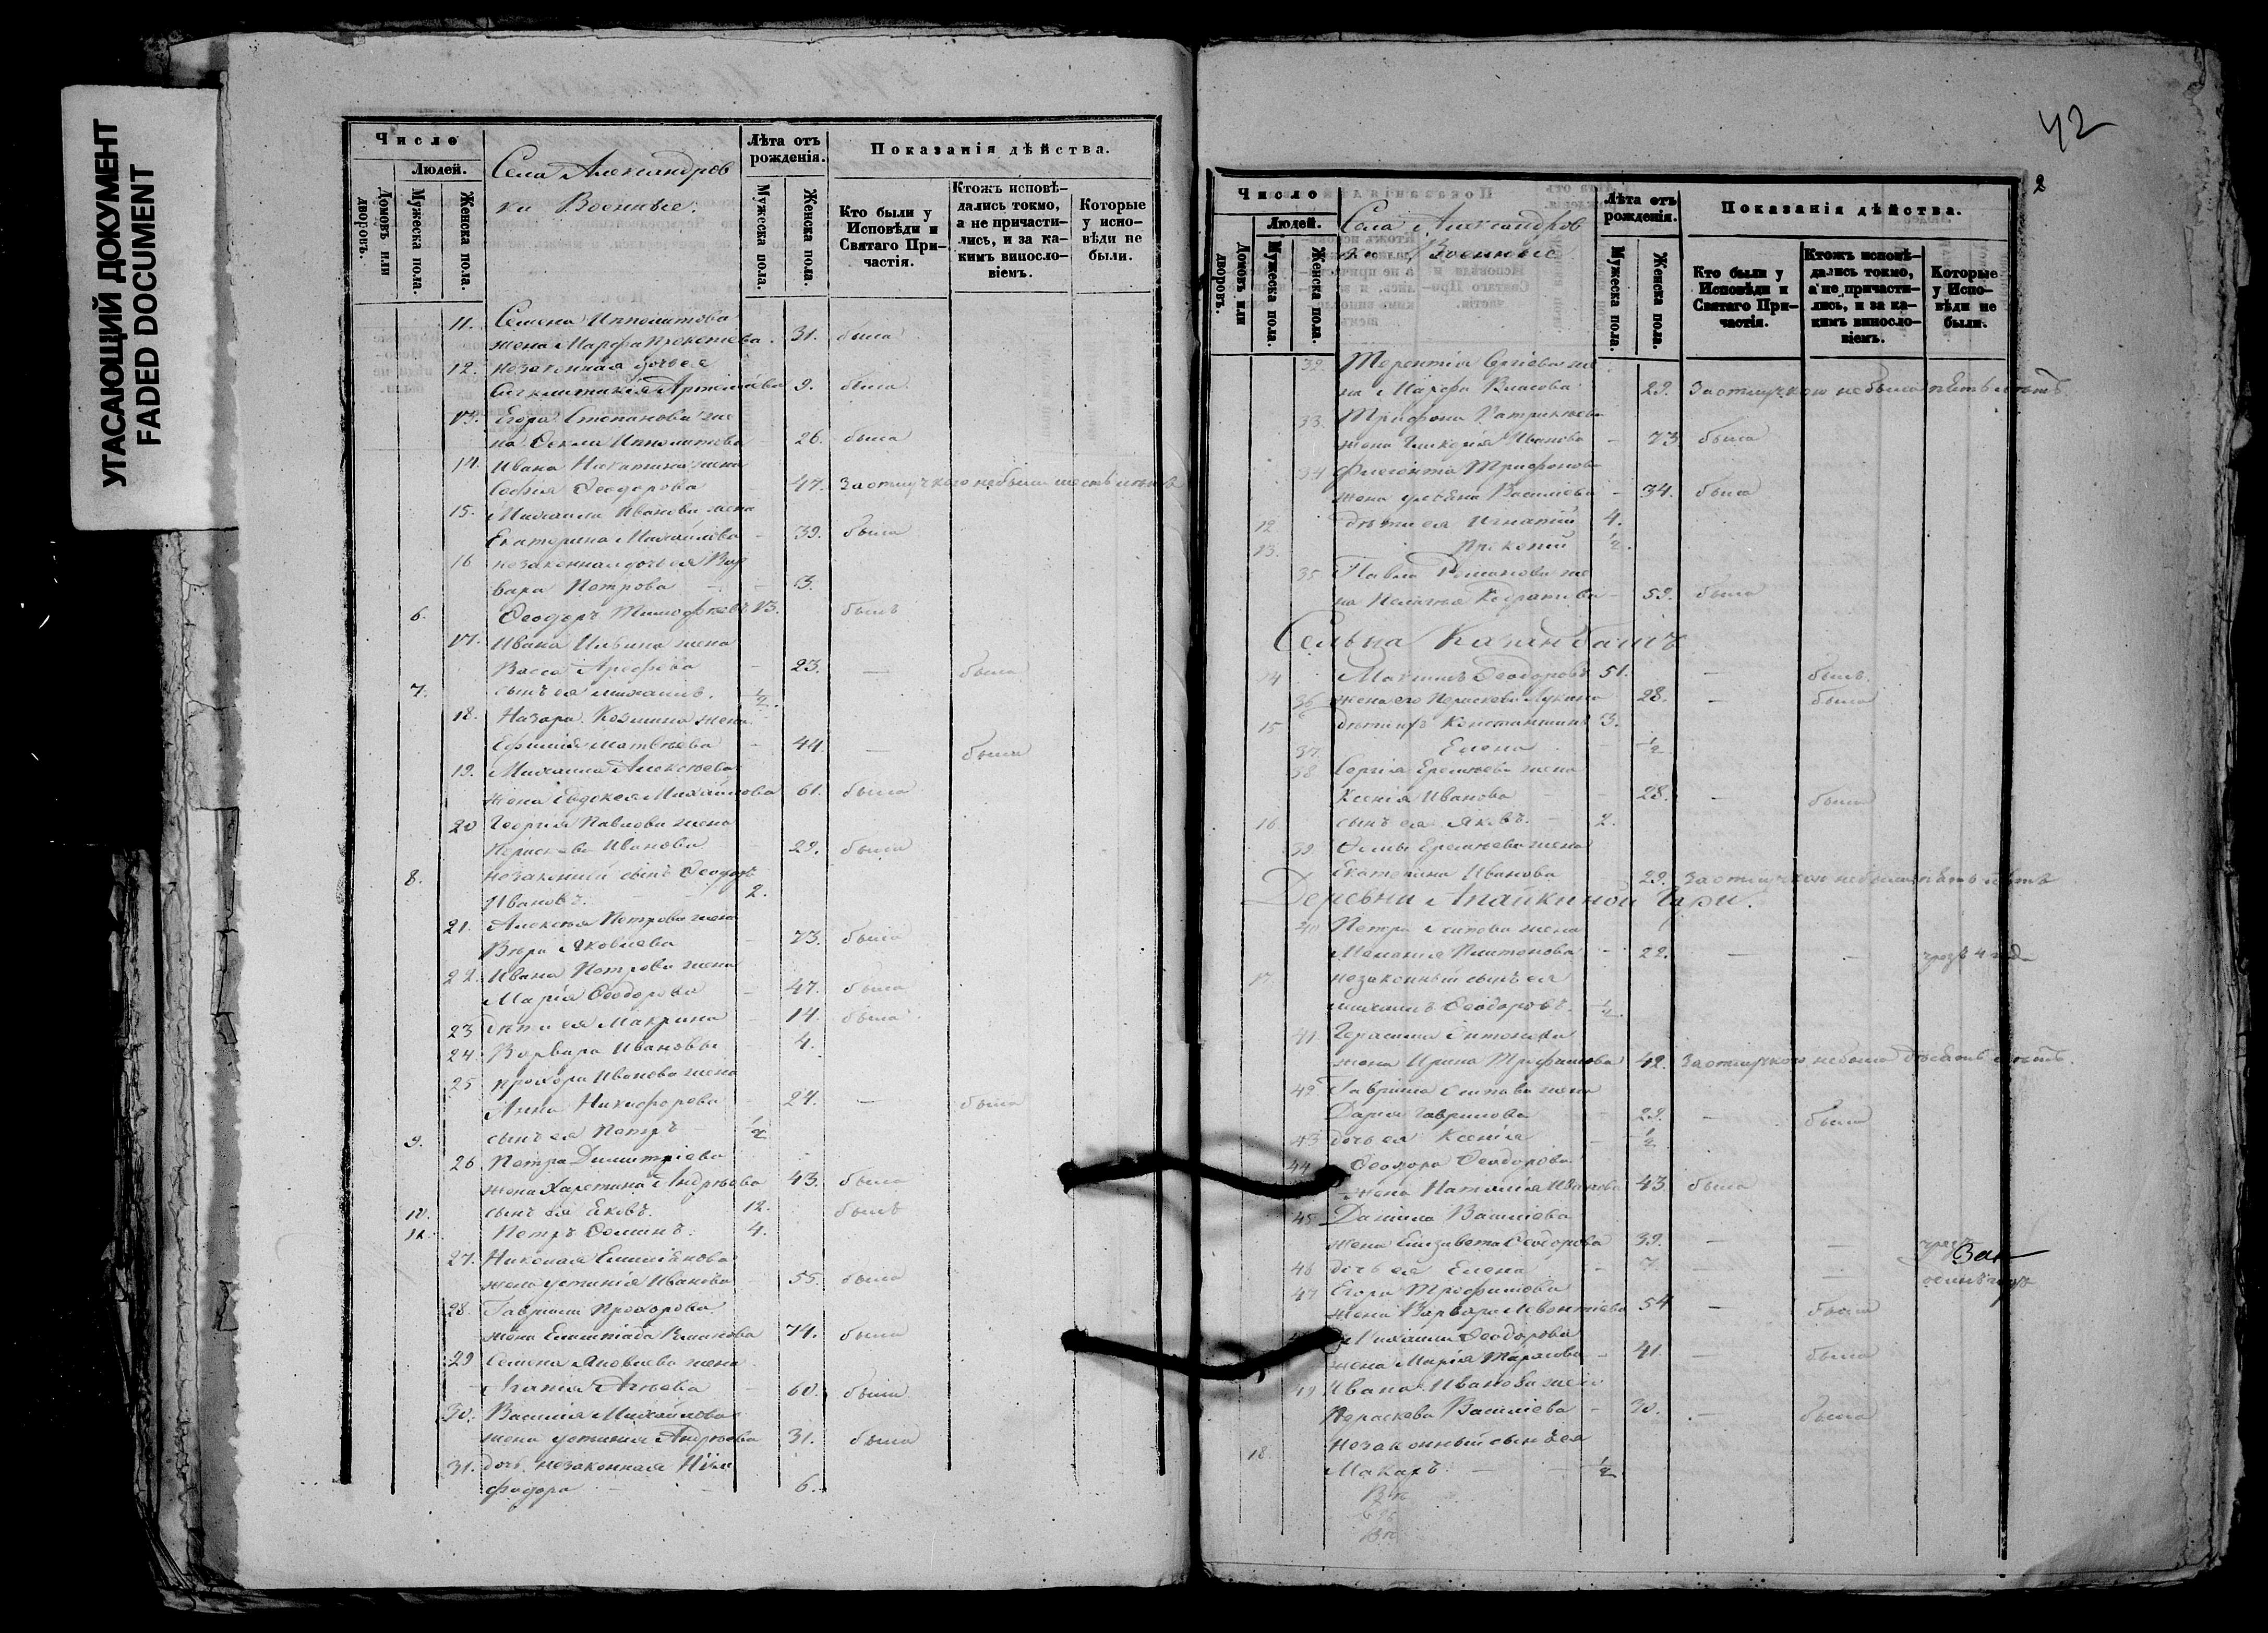 УГАСАЮЩИЙ ДОКУМЕНТ
FADED DOCUMENT
Число
Людей.
Домовъ или дворовъ.
Мужеска пола.
Женска пола.
Села Александров
ки Военные.
Лѣта отъ рожденія.
Мужеска пола.
Женска пола.
Показанія дѣйства.
Кто были у Исповѣди и Святаго Причастія.
Ктожъ исповѣдались токмо, а не причастились, и за какимъ винословіемъ.
Которые у исповѣди не были.
11. Семена Ипполитова
жена Марфа 31. была
12. незаконная дочь ея
Артемьева 9. была
13. Егора Степанова же
на Фекла Ипполитова 26. была
14. Ивана Никитина жена
Софія Ѳеодорова 47. За отлучкою небыла шесть лѣтъ
15. Михаила Иванова жена
Екатерина Михайлова 39. была
16 незаконная дочь ея Вар
вара Петрова 3.
6. Ѳеодоръ Тимофеевъ 13. былъ
17. Ивана Ильина жена
Васса Арефьева 23. — была
7. сынъ ея Михаилъ. 1/2.
18. Назара Козмина жена
Ефимія Матвѣева 44. — была
19. Михаила Алексѣева
жена Евдокея Михайлова 61. была
20 Георгія Павлова жена
Параскева Иванова 29. была
8. незаконный сынъ Ѳеодоръ
Ивановъ. 2.
21. Алексѣя Петрова жена
Вѣра Яковлева 73. была
22. Ивана Петрова жена
Марія Ѳеодорова 47. была
23 дѣти ея Макрина 14. была
24. Варвара Ивановы 4.
25 Прохора Иванова жена
Анна Никифорова 24. — была
9. сынъ ея Петръ 1/2
26 Петра Димитріева
жена Харетина Андрѣева 43. была
10. сынъ ея Яковъ. 12. былъ
11. Петръ Ѳоминъ. 4.
27. Николая Емилѣянова
жена Устинія Иванова 55. была
28. Гавріила Прохорова
жена Климова 74. была
29 Семена Яковлева жена
Агафія 60. была
30. Василія Михайлова
жена Устинія Андрѣева 31. была
31. дочь незаконная Ним
фодора 6.
42
2
Число
Людей.
Домовъ или дворовъ.
Мужеска пола.
Женска пола.
Села Александров
ки Военные
Лѣта отъ рожденія.
Мужеска пола.
Женска пола.
Показанія дѣйства.
Кто были у Исповѣди и Святаго Причастія.
Ктожъ исповѣдались токмо, а не причастились, и за какимъ винословіемъ.
Которые у Исповѣди не были.
32. Терентія Сергіева же
на Марфа Власова 29. За отлучкою небыла пять лѣтъ
33. Трифона Патрикѣева
жена Гликерія Иванова 73 была
34 Флегонта Трифонова
жена Ульяна Василіева 34. была
12 дѣти ея Игнатій 4.
13. Прокопій 1/2.
35 Павла Романова же
на Пелагѣя 59. была
Сельца
14 Максимъ Ѳеодоровъ 51. — былъ.
36 жена его Параскева Лукина 28. — была
15 дѣти ихъ Константинъ 3.
37. Елена 1/2
38 Сергія Еремѣева жена
Ксенія Иванова 28. — была
16 сынъ ея Яковъ. 2.
39. Ѳомы Еремѣева жена
Екатерина Иванова 29. За отлучкою небыла пять лѣтъ
Деревни Апайкиной Гари.
40 Петра жена
Меланія Платонова 22. — — чрезъ 4 год
17 незаконный сынъ ея
Михаилъ Ѳеодоровъ. 1/2.
41 Герасима Антонова
жена Ирина Трофимова 42. За отлучкою небыла лѣтъ.
42 Гавріила жена
Дарья Гаврилова 29. — была
43 дочь ея Ксенія 1/2
44 Ѳеодора Ѳеодорова
жена Наталія Иванова 43. была
45 Даніила Василіева
жена Елизавета Ѳеодорова 39. — —
46 дочь ея Елена 7. — —
Зак
47 Егора Трофимова
жена Варвара Леонтіева 54 — была
Михаила Ѳеодорова
жена Марія Тарасова 41 — была
49 Ивана Иванова жена
Параскева Василіева 30. — была
18. незаконный сынъ ея
Макаръ. 1/2